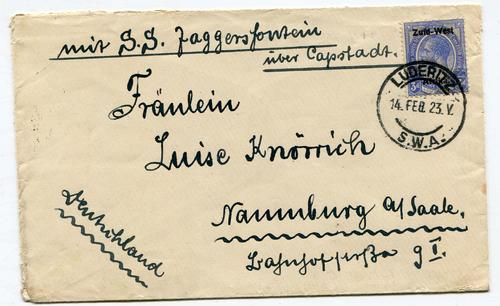 mit S.S. Jaggersfontein
über Capstadt.
Zuid-West
LUDERITZ
14. FEB. 23. V.
S.W.A.
Fräulein
Luise Knörrich
Naumburg a/Saale.
Bahnhofstraße 9 I.
Deutschland